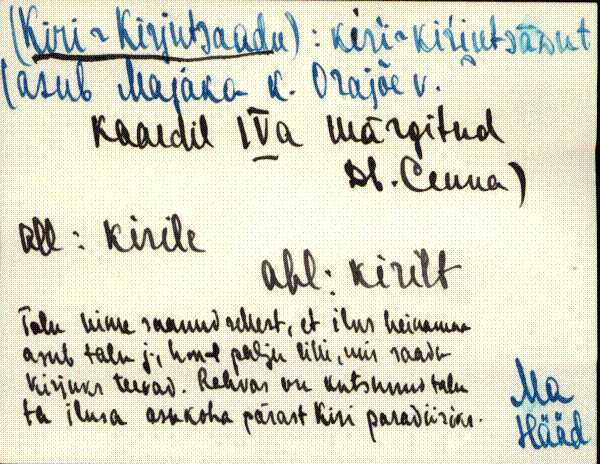 (Kiri ~ Kirjutsaadu) : kiri ~ kirjutsäᴅut
(asub Majaka k. Orajõe v.
Kaardil IVa märgitud
Cenna)
all : kirile
abl : kirilt
Talu nime saanud sellest, et ilus heinamaa
asub talu j., kus palju lilli, mis saadu
kirjuks teevad. Rahvas on kutsunud talu
ta ilusa asukoha pärast Kiri paradiisiks.
Ma
Hääd